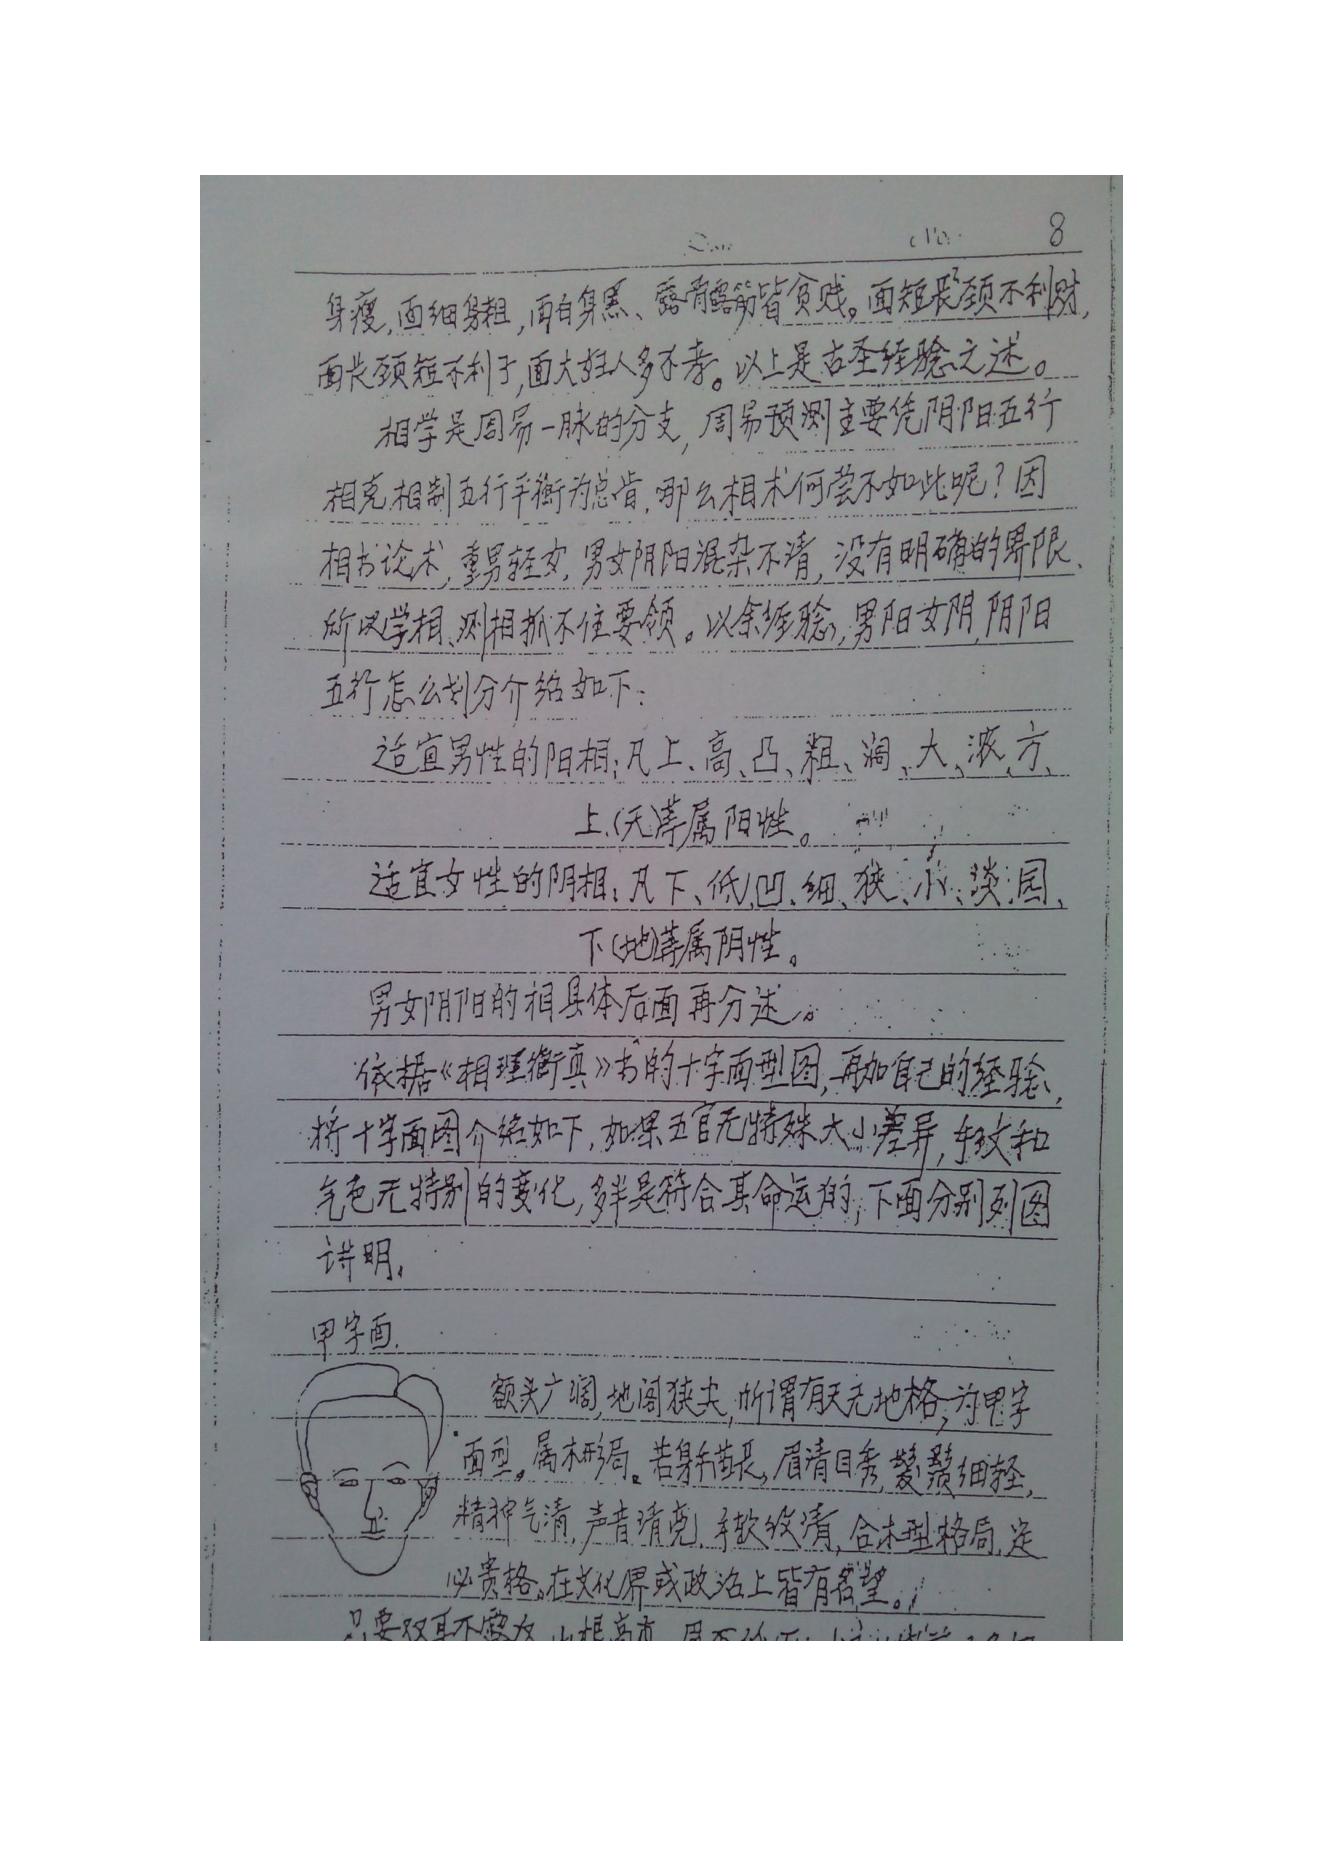 8
身瘦,面细身粗,面白身黑、露骨露筋皆贫贱。面短长颈不利财,
面长颈短不利子,面大妇人多不孝。以上是古圣经验之述。
相学是周易一脉的分支,周易预测主要凭阴阳五行
相克相制五行平衡为总旨,那么相术何尝不如此呢?因
相书论术,重男轻女,男女阴阳混杂不清,没有明确的界限、
所以学相、测相抓不住要领。以余经验,男阳女阴,阴阳
五行怎么划分介绍如下:
适宜男性的阳相:凡上、高、凸、粗、阔、大、浓、方、
上(天)等属阳性。
适宜女性的阴相:凡下、低、凹、细、狭、小、淡、园、
下(地)等属阴性。
男女阴阳的相具体后面再分述。
依据《相理衡真》书的十字面型图,再加自己的经验、
将十字面图介绍如下,如果五官无特殊大小差异,手纹和
气色无特别的变化,多半是符合其命运的,下面分别列图
讲明。
甲字面.
额头广阔,地阁狭尖,所谓有天无地格,为甲字
面型。属木形局。若身手苗长,眉清目秀,鬓须细轻,
精神气清,声音清亮,手软纹清,合木型格局,定
必贵格。在文化界或政治上皆有名望。
只要双耳不露反,山根高